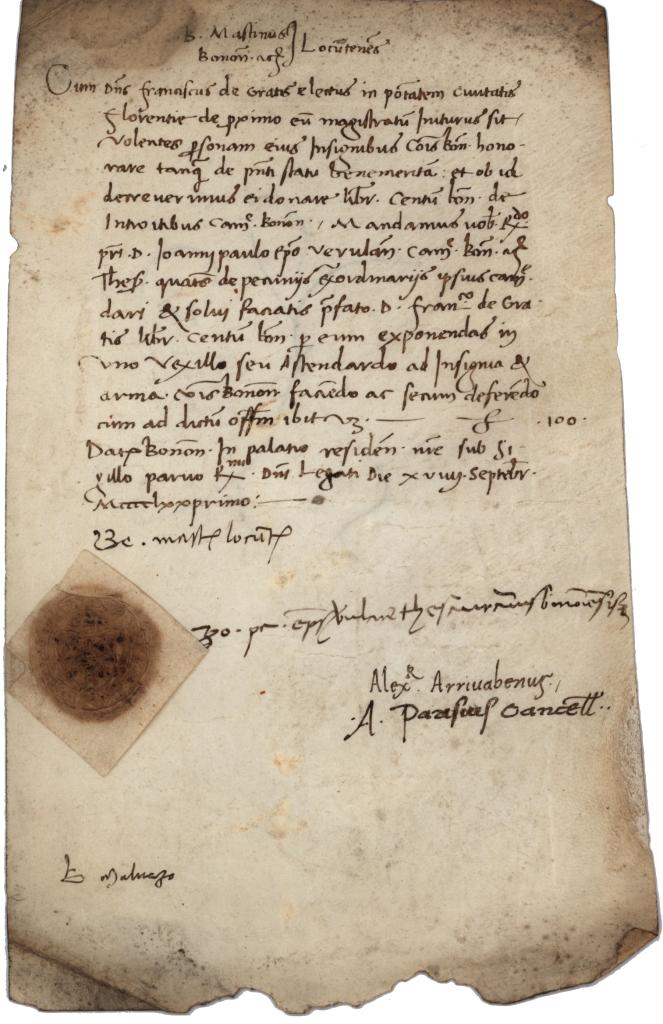 B. Mastinus
Bonon. ac Locutenens
Cum Dns franciscus de Gratis electus in potatem Civitatis
florentie de proximo eu magistratu Initurus sit
Volentes personam eius Insignibus Cois bon. hono-
rare tanq de pnti statu benemerita: et ob id
decreverimus ei donare libr. Centu bon. de
Introitibus Cam. bonon., Mandamus vob. Rdo
pri. D. Joanni paulo epo verulan. Cam. bon. ac
Thes. quatos de pecunijs exordinarijs ipsius cam.
dari & solvi faciatis pfato. D. franco de Gra-
tis libr. Centu bon. p eum exponendas in
vno Vexillo seu Astendardo ad Insignia &
arma. Cois Bonon. faciedo ac secum deferedo
cum ad dictu offm ibit vz. 100.
Dat. Bonon. In palatio residen. nre sub Si-
gillo parvo Rmi. Dni Legati Die xviiij. Septebr.
Mcccclxxprimo:
locut
30. pa. eps
Alexr. Arrivabenus,
A. Parisius Cancell.